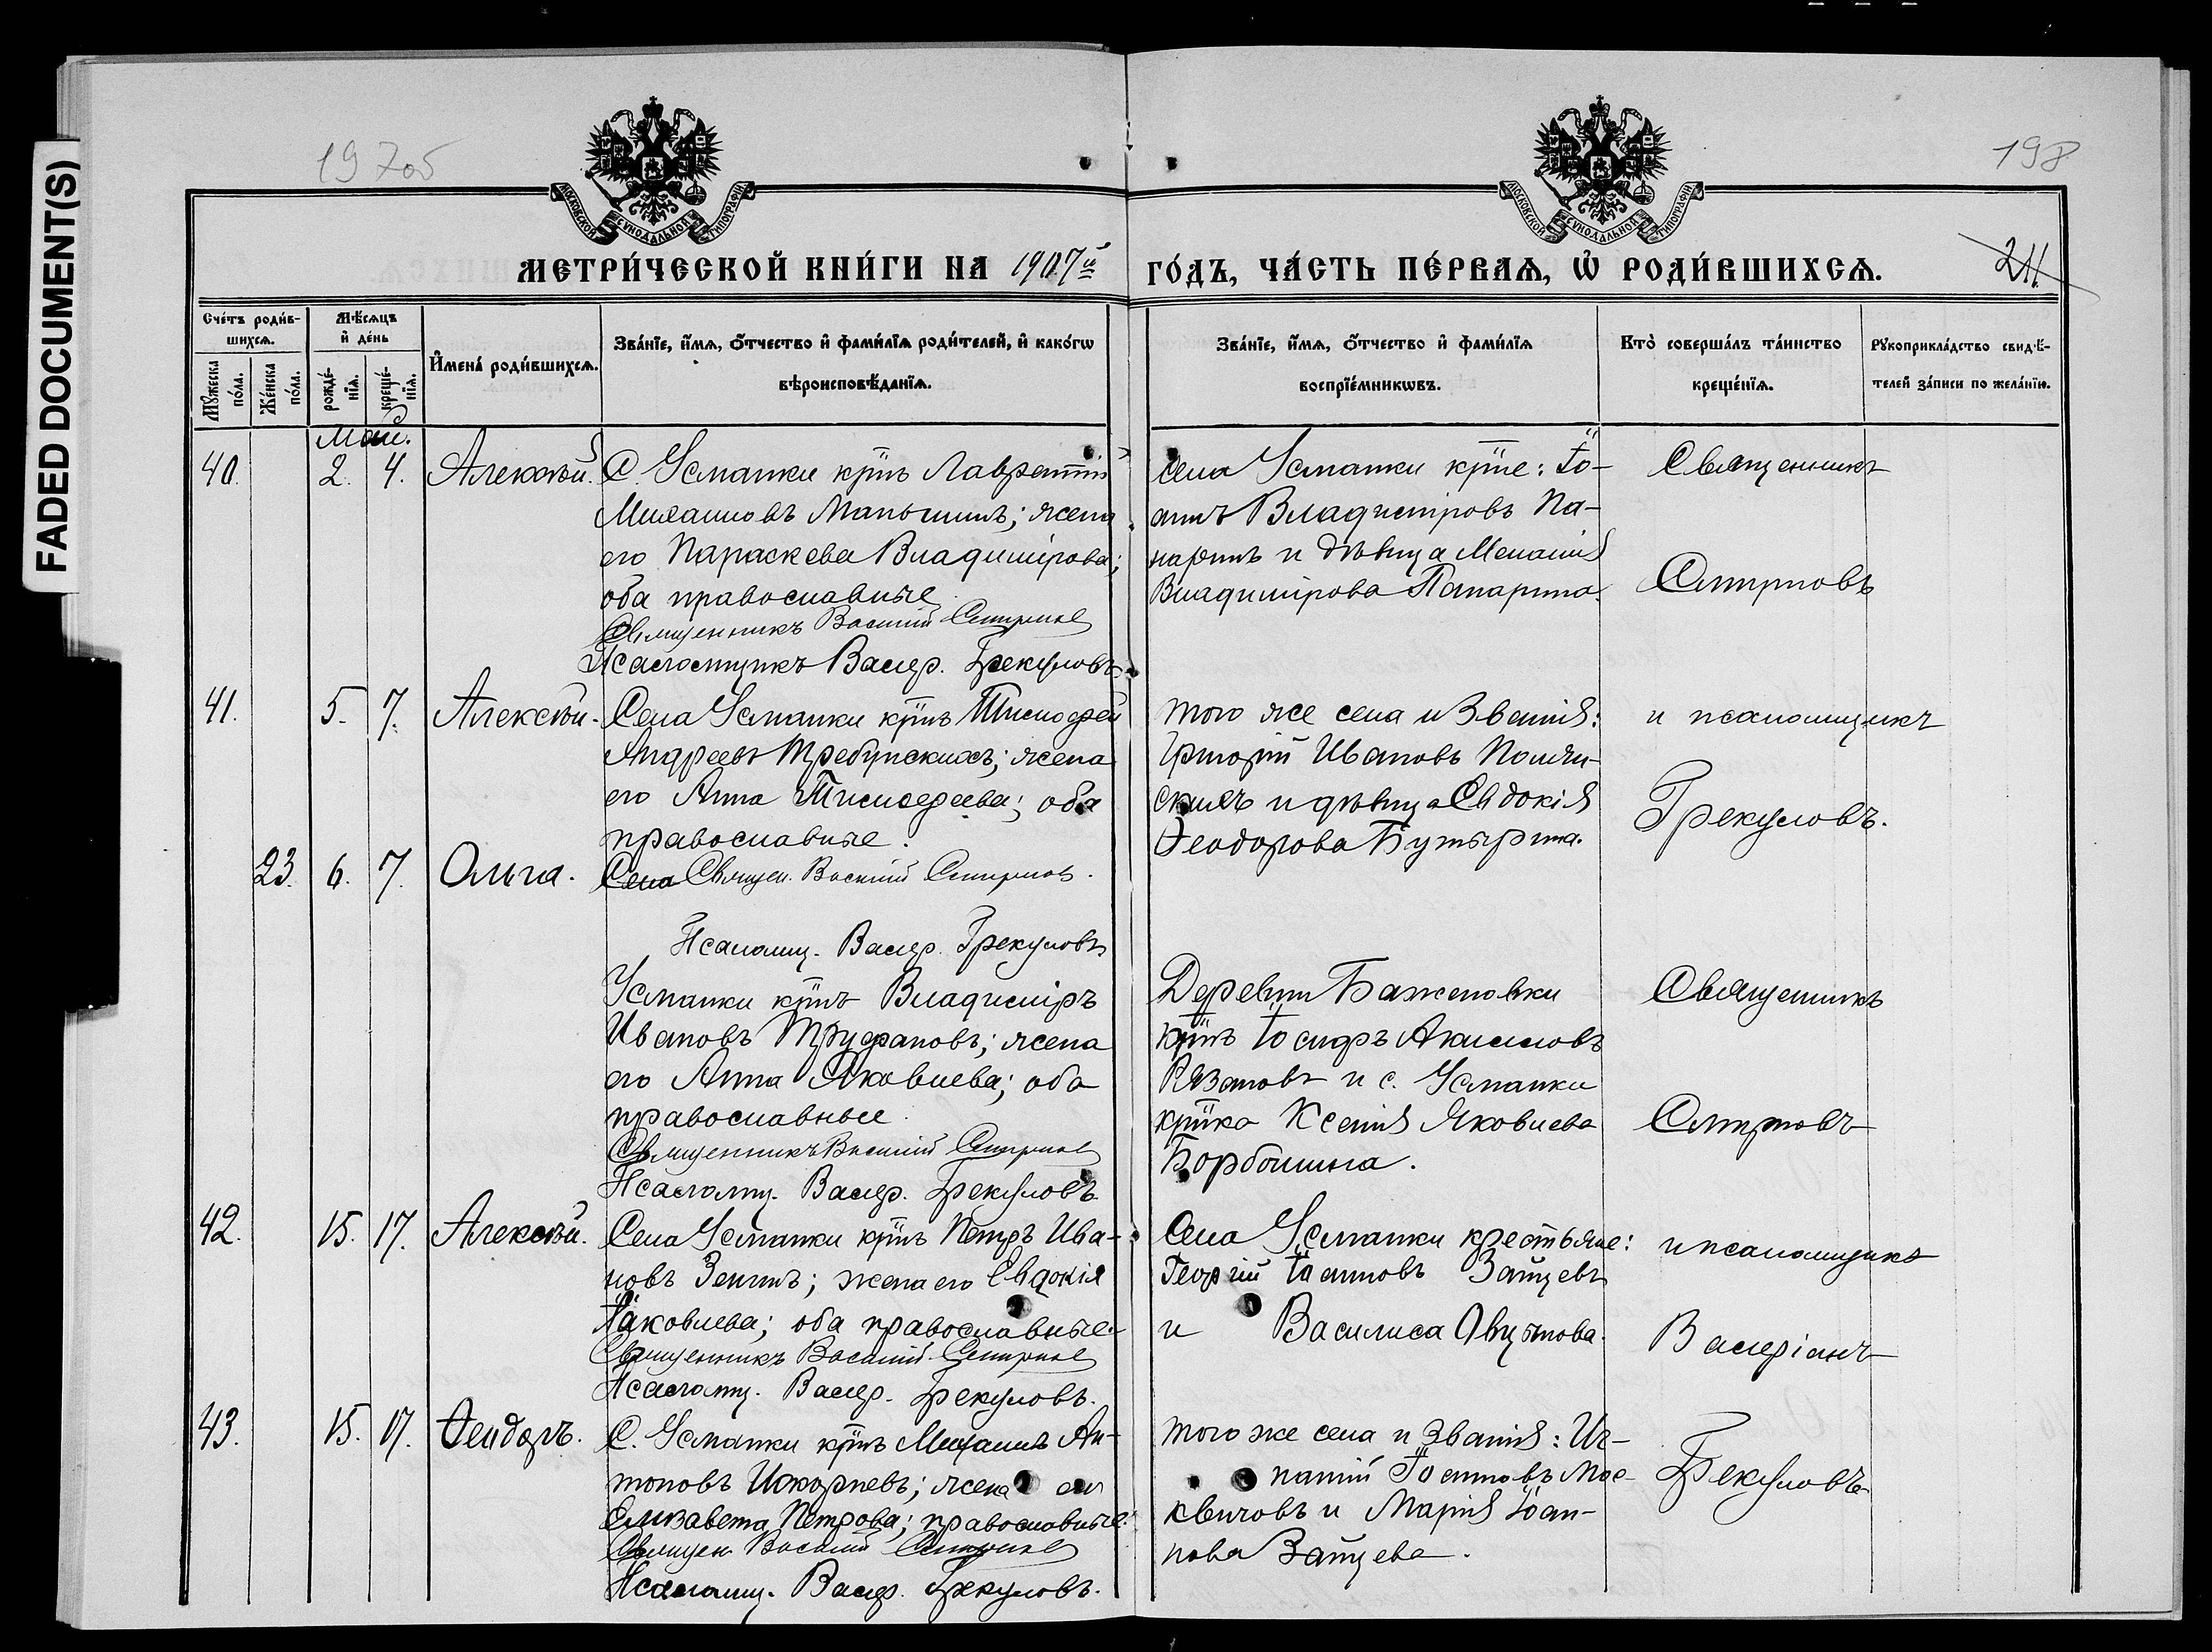 FADED DOCUMENT(S)
19705
198
211
МОСКОВСКОЙ СѴНОДАЛЬНОЙ ТИПОГРАФІИ
МОСКОВСКОЙ СѴНОДАЛЬНОЙ ТИПОГРАФІИ
МЕТРИ́ЧЕСКОЙ КНИ́ГИ НА 1907й ГО́ДЪ, ЧА́СТЬ ПЕ́РВАЯ, Ѡ҆ РОДИ́ВШИХСЯ.
Сче́тъ роди́в-
шихся.
Мꙋжеска по́ла.
Же́нска по́ла.
Мѣ́сяцъ
и҆ де́нь
рожде́-
нїя.
креще́-
нїя.
И҆мена̀ роди́вшихся.
Зва́нїе, и҆́мя, ѻ҆́тчество и҆ фами́лїя роди́телей, и҆ како́гѡ
вѣроисповѣ́данїя.
Зва́нїе, и҆́мя, ѻ҆́тчество и҆ фами́лїя
воспрїе́мникѡвъ.
Кто̀ соверша́лъ та́инство
креще́нїя.
Рꙋкоприкла́дство свидѣ́-
телей за́писи по жела́нїю.
Май.
40. 2. 4. Алексѣй. С. Усманки кр̅нъ Лаврентій
Михаиловъ Маньшинъ; жена
его Параскева Владимірова;
оба православные.
Священникъ Василий Смирнов
Псаломщикъ Валер. Грекуловъ
села Усманки кр̅не: Іо-
аннъ Владиміровъ Па-
наринъ и дѣвица Меланія
Владимірова Панарина.
Священникъ
Смирновъ
41. 5. 7. Алексѣй. Села Усманки кр̅нъ Тимофей
Андреевъ Требунскихъ; жена
его Анна Тимофеева; оба
православные.
того же села и званія:
Григорій Ивановъ Полян-
скихъ и дѣвица Евдокія
Ѳеодорова Бутырина.
и псаломщикъ
Грекуловъ.
23. 6. 7. Ольга. Села Священ. Василий Смирнов.
Псаломщ. Валер. Грекуловъ
Усманки кр̅нъ Владиміръ
Ивановъ Труфановъ; жена
его Анна Яковлева; оба
православные.
Священникъ Василий Смирнов
Псаломщ. Валер. Грекуловъ
Деревни Баженовки
кр̅нъ Іосифъ Акимовъ
Рязановъ и с. Усманки
кр̅нка Ксенія Яковлева
Священникъ
Смирновъ
42. 15. 17. Алексѣй. Села Усманки кр̅нъ Петръ Ива-
новъ Зенинъ; жена его Евдокія
Іаковлева; оба православные.
Священникъ Василий Смирнов
Псаломщ. Валер. Грекуловъ.
Села Усманки крестьяне:
Георгій Іоанновъ Зайцевъ
и Василиса
и псаломщикъ
Валеріанъ
43. 15. 17. Ѳеодоръ. С. Усманки кр̅нъ Михаилъ Ан-
тоновъ Шкорневъ; жена его
Елизавета Петрова; православные.
Священ. Василий Смирнов
Псаломщ. Валер. Грекуловъ.
того же села и званія: Иг-
натій Іоанновъ Мос-
квичовъ и Марія Іоан-
нова Зайцева.
Грекуловъ